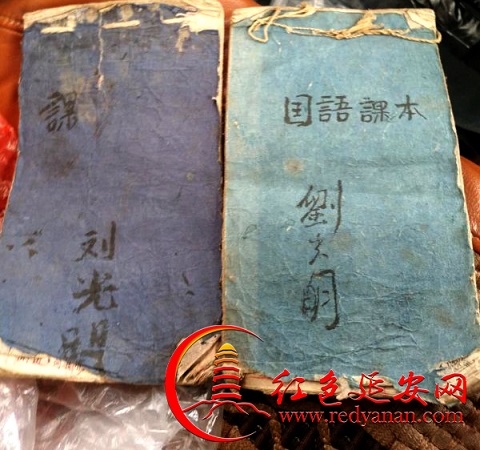 課
刘光明
国語課本
劉光明
红色延安网
www.redyanan.com